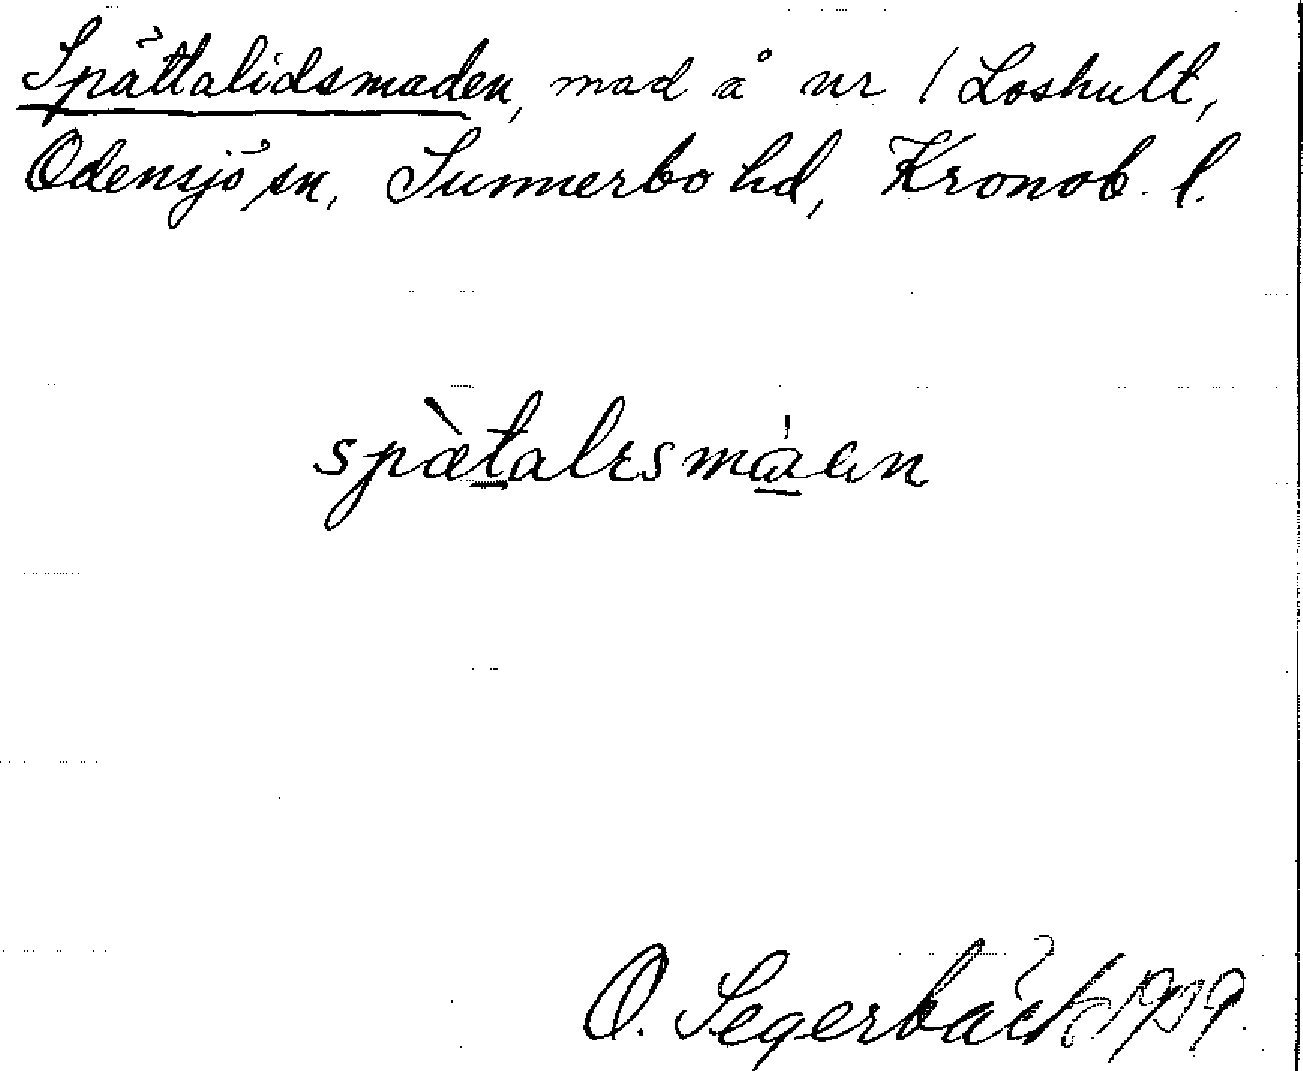 Spättalidsmaden, mad å nr 1 Loshult,
Odensjö sn, Sunnerbo hd, Kronob. l.
spæ̀talɛsmàɐn
O. Segerbäck 1939.